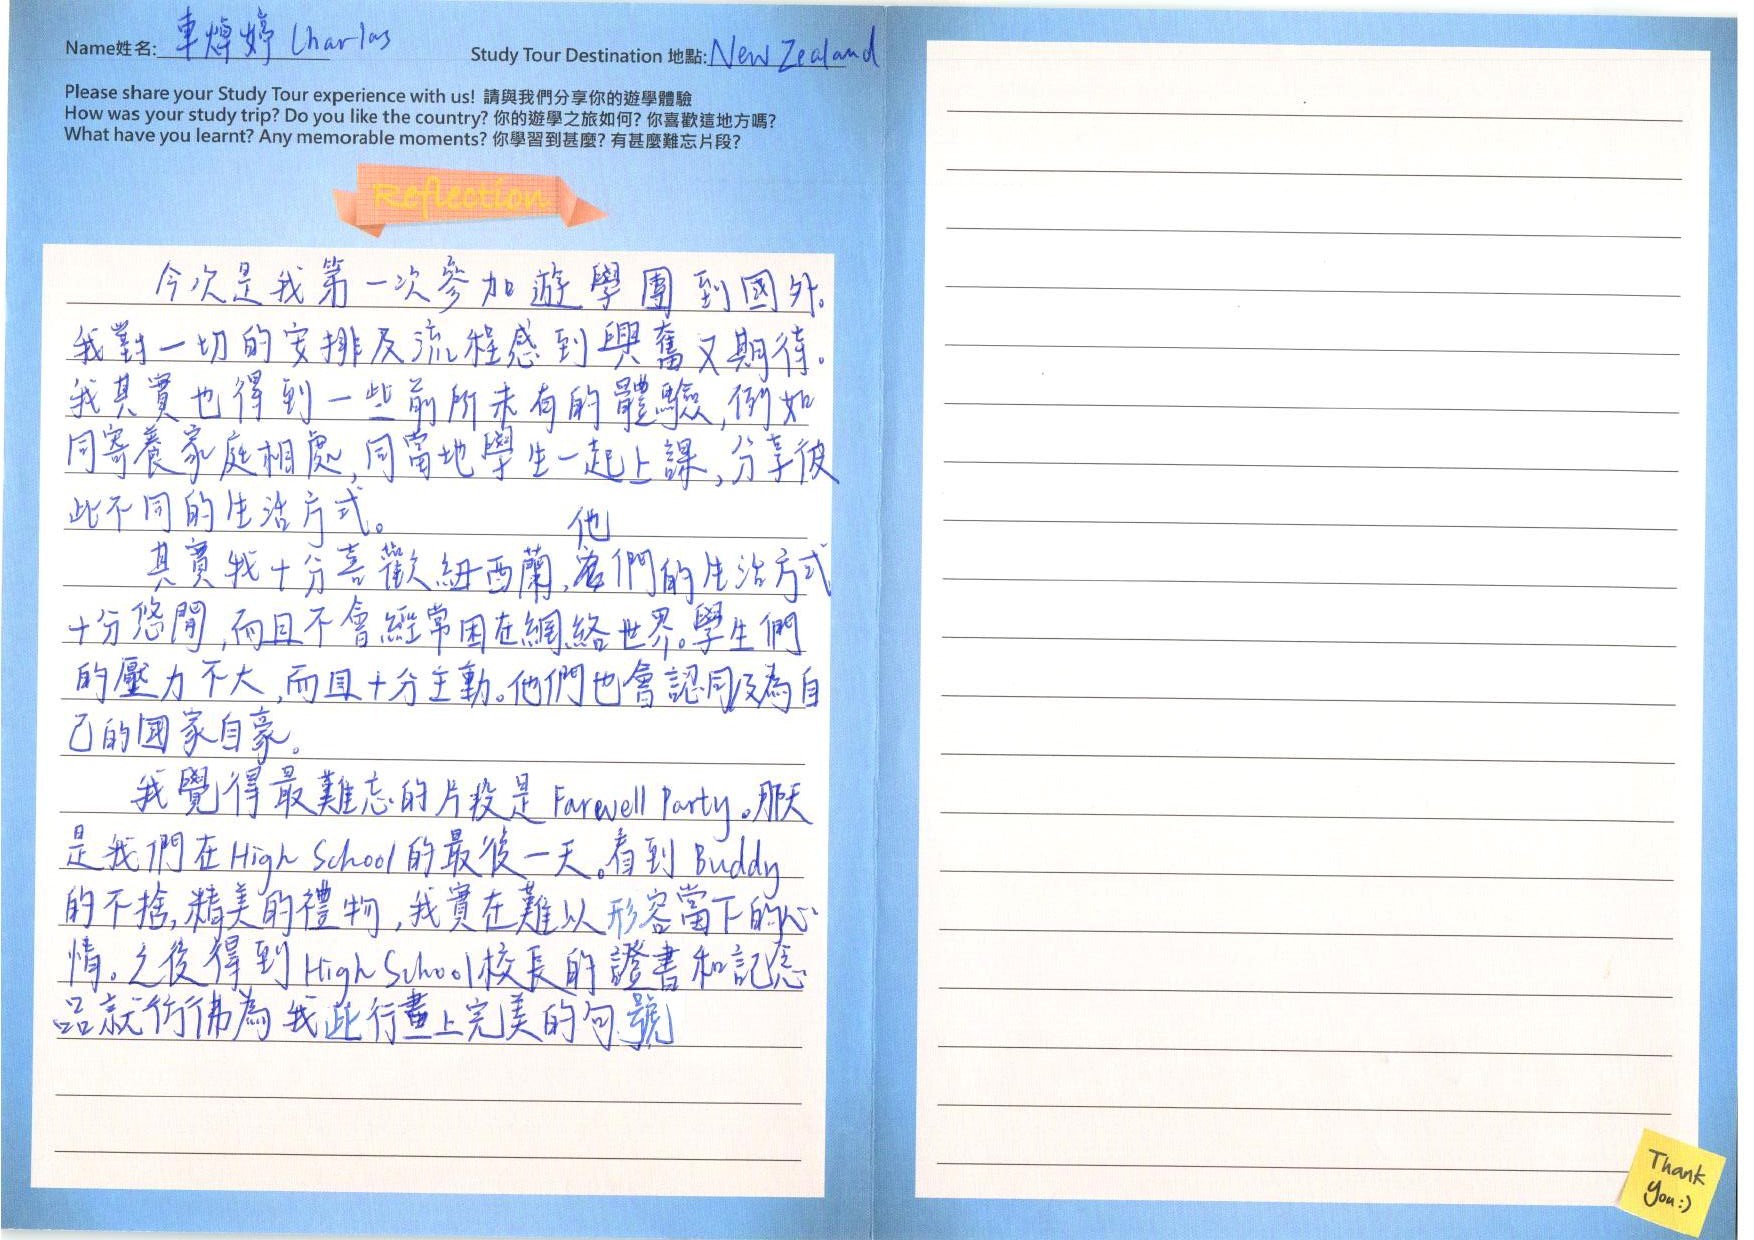 Name姓名: 車焯婷 Charlas
Study Tour Destination 地點: New Zealand
Please share your Study Tour experience with us! 請與我們分享你的遊學體驗
How was your study trip? Do you like the country? 你的遊學之旅如何? 你喜歡這地方嗎?
What have you learnt? Any memorable moments? 你學習到甚麼? 有甚麼難忘片段?
Reflection
今次是我第一次參加遊學團到國外。
我對一切的安排及流程感到興奮又期待。
我其實也得到一些前所未有的體驗,例如
同寄養家庭相處,同當地學生一起上課,分享彼
此不同的生活方式。
其實我十分喜歡紐西蘭,他們的生活方式
十分悠閒,而且不會經常困在網絡世界。學生們
的壓力不大,而且十分主動。他們也會認同及為自
己的國家自豪。
我覺得最難忘的片段是Farewell Party。那天
是我們在High School的最後一天。看到Buddy
的不捨,精美的禮物,我實在難以形容當下的心
情。之後得到High School校長的證書和記念
品就彷彿為我此行畫上完美的句號
Thank
You:)